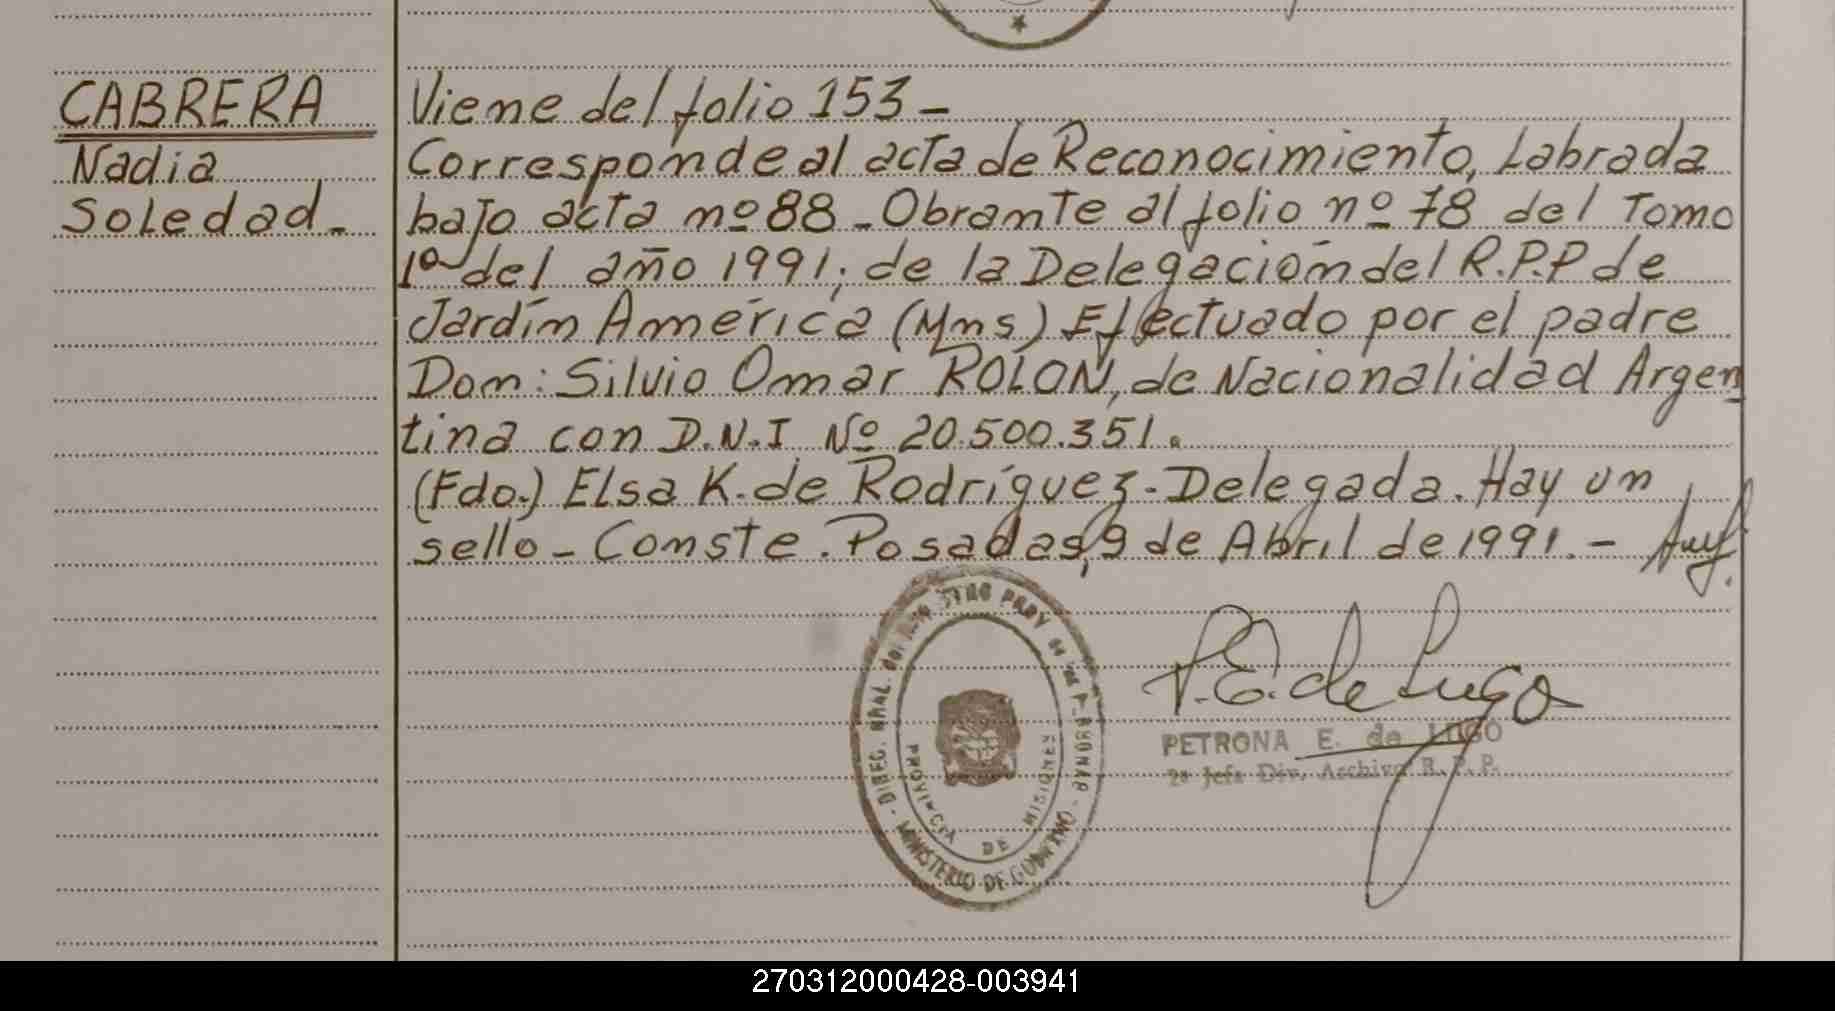 CABRERA
Nadia
Soledad.-
Viene del folio 153-
Corresponde al acta de Reconocimiento, Labrada
bajo acta nº 88-Obrante al folio nº 78 del Tomo
1º del año 1991, de la Delegación del R.P.P de
Jardín América (Mns) Efectuado por el padre
Don: Silvio Omar ROLON, de Nacionalidad Argen
tina con D.N.I Nº 20.500.351.
(Fdo.) Elsa K. de Rodríguez-Delegada. Hay un
sello-Conste. Posadas, 9 de Abril de 1991.-
P.E. de Lugo
PETRONA E. de LUGO
2ª Jefa Div. Archivo R.P.P.
PROVINCIA DE MISIONES
MINISTERIO DE GOBIERNO
270312000428-003941